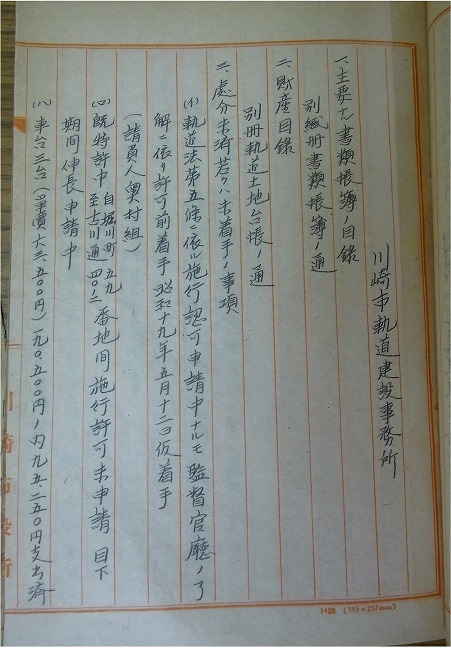 川崎市軌道建設事務所
一、主要ナル書類帳簿ノ目録
別紙冊書類帳簿ノ通
二、財産目録
別冊軌道土地台帳ノ通
三、處分未済若クハ未着手ノ事項
(イ)軌道法第五條ニ依ル施行認可申請中ナルモ監督官廳ノ了
解ニ依リ許可前着手昭和十九年五月十二日仮着手
(請負人奥村組)
(ロ)既特許中自堀川町五九至古川通四〇ノ二番地間施行許可未申請 目下
期間伸長申請中
(ハ)車台三台(單價六三、五〇〇円)一九〇、五〇〇円ノ内九五、二五〇円支出済
川崎市役所
14號 (395×252mm)